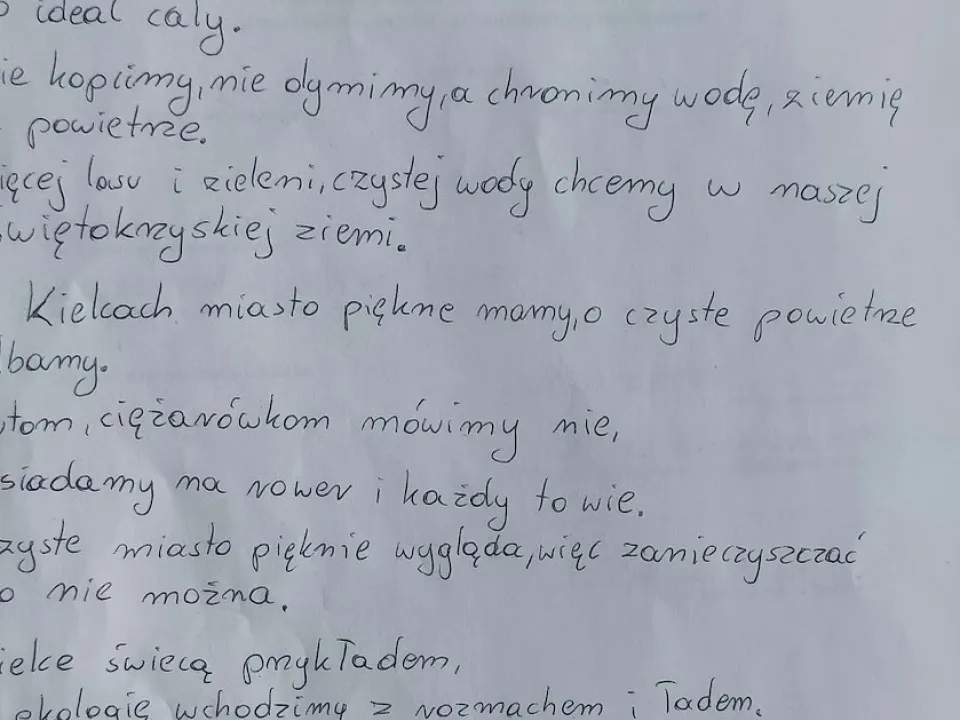 ideal cały.
kopcimy, nie dymimy, a chronimy wodę, ziemię
powietrze.
lasu i zieleni, czystej wody chcemy w naszej
więtokrzyskiej ziemi.
Kielcach miasto piękne mamy, o czyste powietrze
bamy.
tom, ciężarówkom mówimy nie,
siadamy na rower i każdy to wie.
zyste miasto pięknie wygląda, więc zanieczyszczać
o nie można.
ielce świecą przykładem,
ekologię wchodzimy z rozmachem i ładem.